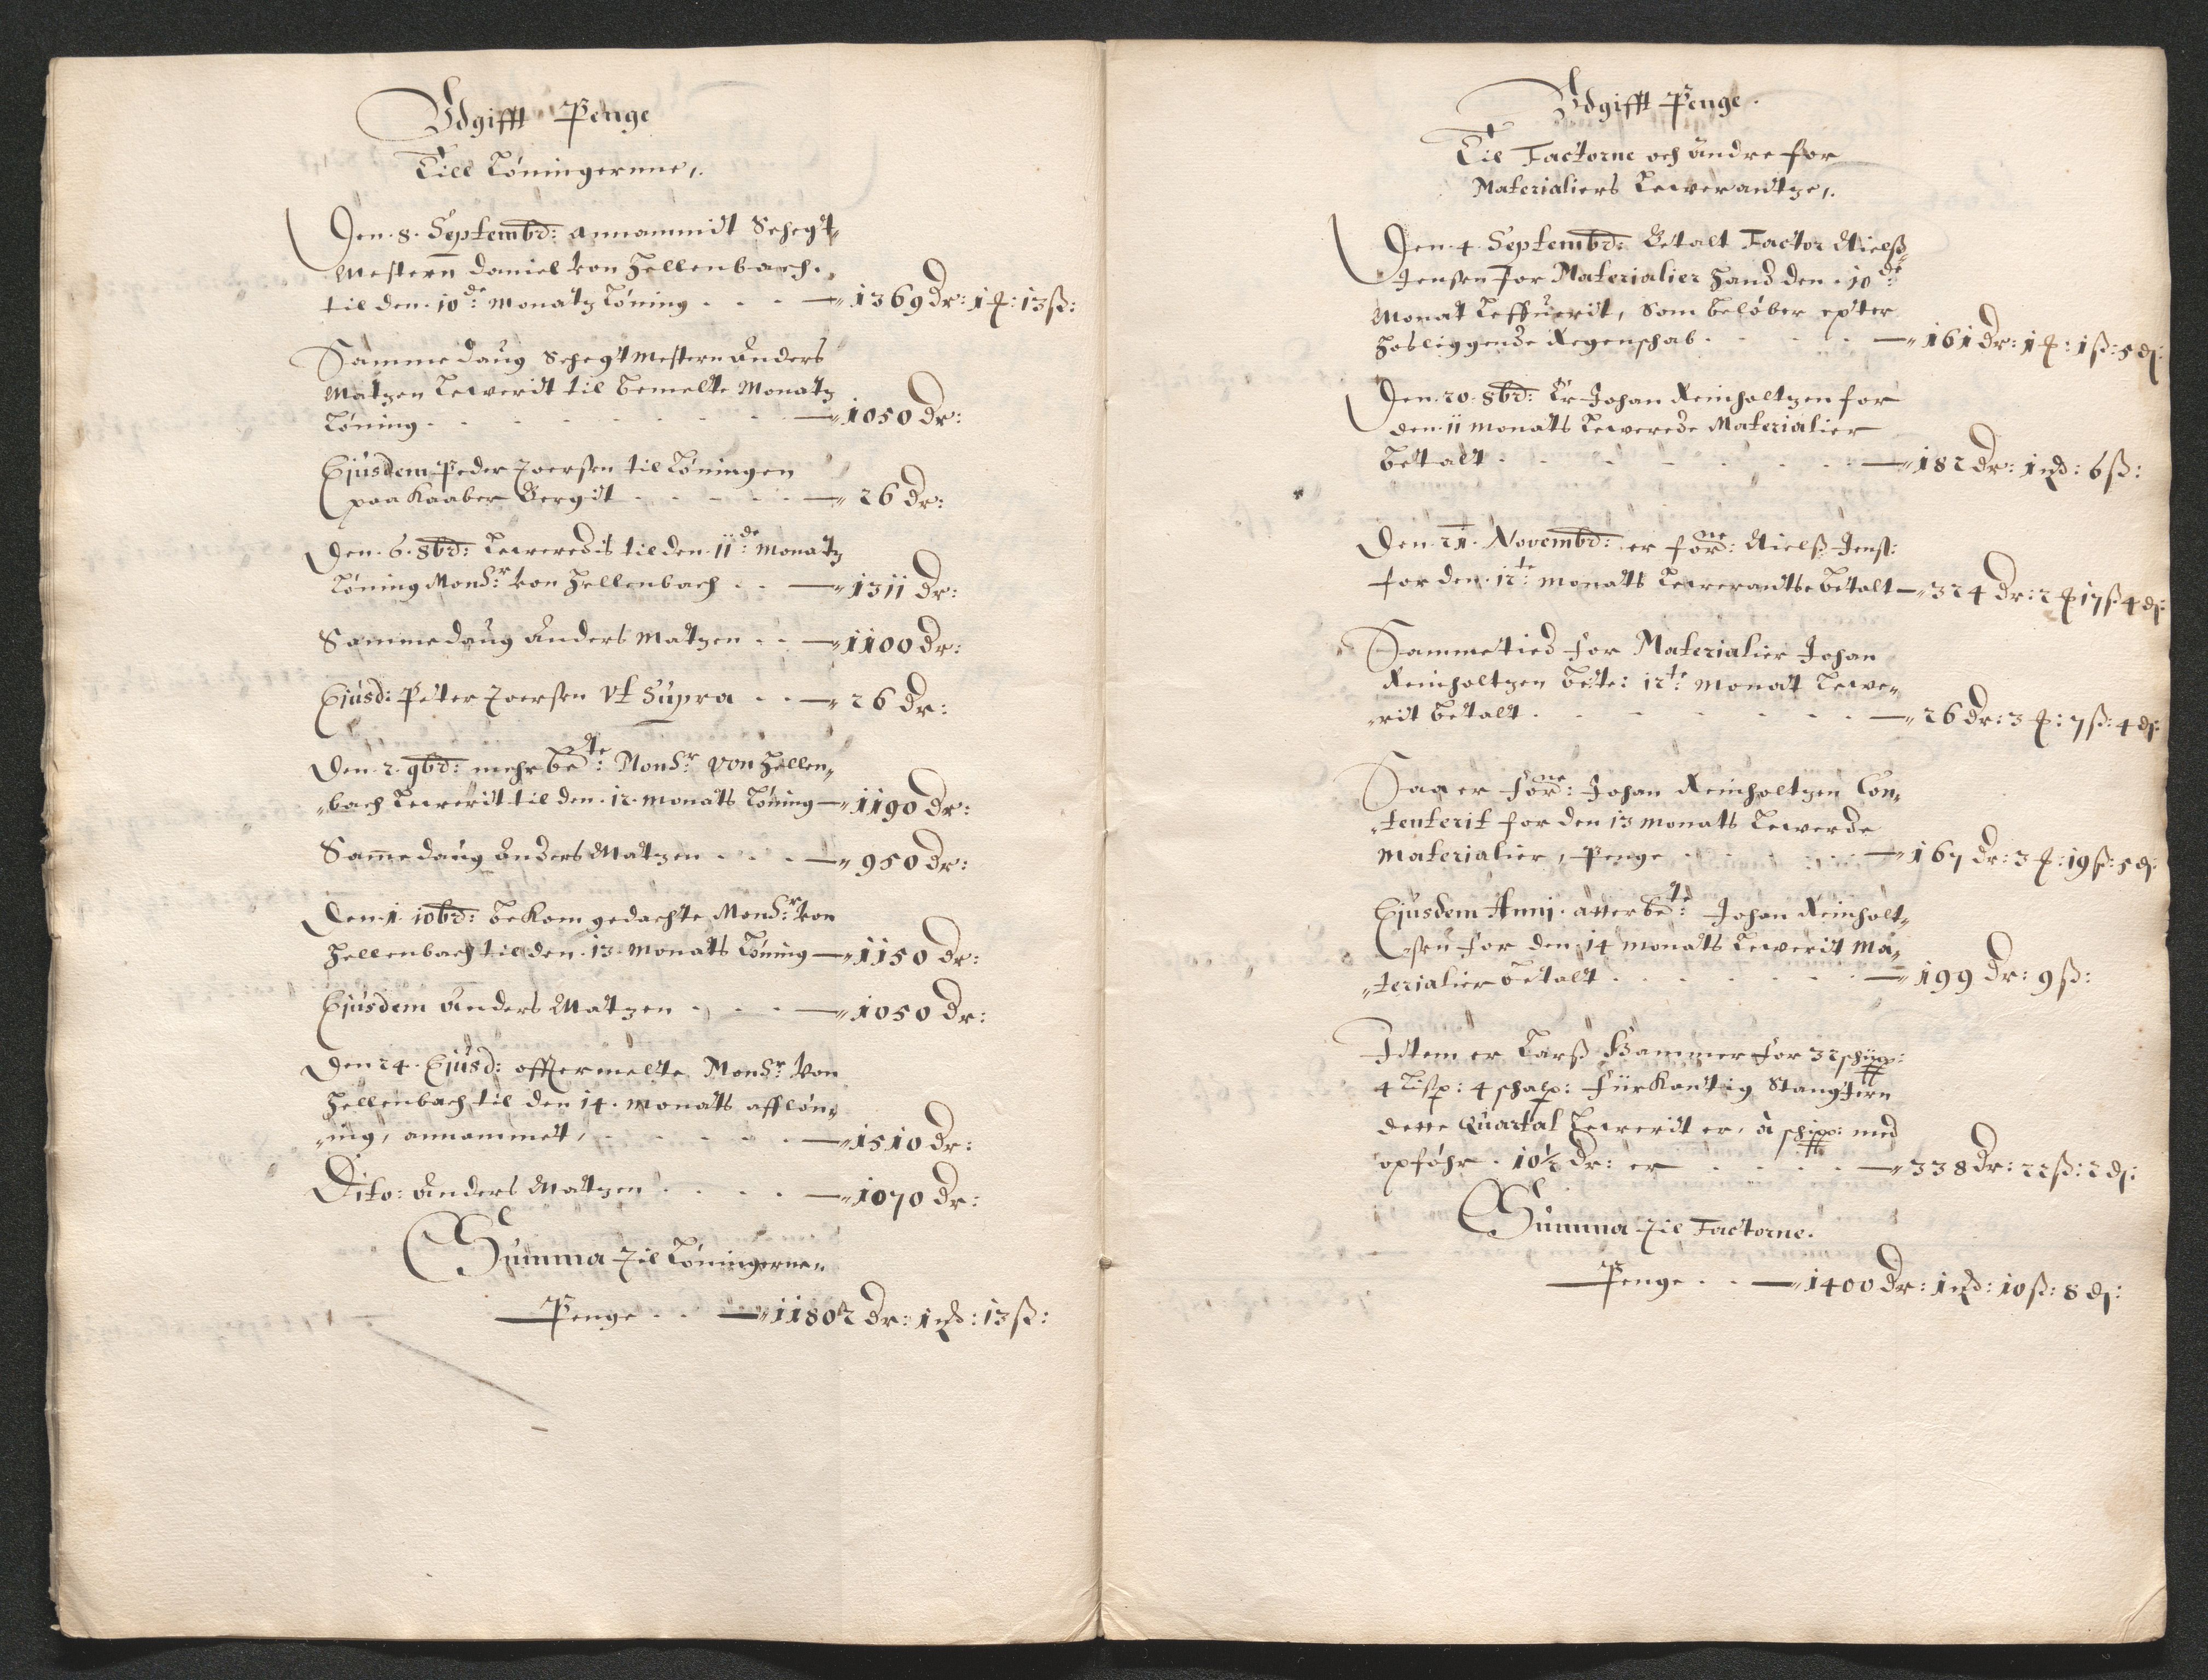 Vdgifft Penge
Till Löningernne,.
Den 8. Septembr: annammidt Schegt¬
Mestern Daniel von Hellenbach.
til den 10de: Monatz Löning . . . — 1369 Dr: 1 ꝗ: 13 ß:
Samme daug Schegtmestern Anders
Matzen Lewerit til bemelte Monatz
Löning . . . . . . . — 1050 Dr:
Ejusdem Peder Joersen til Löningen
paa Kaaber Bergit . . . . . — 26 Dr:
Den 6. 8br: Leweredis til den 11de: Monatz
Löning Monsr: von Hellenbach . . — 1311 Dr:
Samme daug Anders Matzen . . — 1100 Dr:
Ejusd: Peter Joersen Vt Supra . . — 26 Dr:
Den 2. 9br: mehrbete: Monsr: von Hellen¬
bach Leweridt til den 12. Monats Löning — 1190 Dr:
Samme daug Anders Matzen . . . — 950 Dr:
Den 1. 10br: bekom gedachte Monsr: von
Hellenbach til den 13. Monats Löning — 1150 Dr:
Ejusdem Anders Matzen . . . — 1050 Dr:
Den 24. Ejusd: offtermelte Monsr: von
Hellenbach til den 14. Monats afflön¬
ing, annammet, . . . . . — 1510 Dr:
Dito: Anders Matzen . . . . — 1070 Dr:
Summa Til Löningerne,
Penge . . — 11802 Dr: 1 ꝗ: 13 ß:
Vdgifft Penge.
Til Factorne och Andre for
Materialiers Lewerantze,.
Den 4. Septembr: Betalt Factor Nielß
Jensen for Materialier Hand den 10de:
Monat Leffuerit, Som belöber epter
Hosliggende Regenschab . . . . — 161 Dr: 1 ꝗ: 1 ß: 5 ₰:
Den 20. 8br: Er Johan Reinholtzen for
den 11 Monats Lewerede Materialier
Betalt . . . . . . . — 182 Dr: 1 ꝗ: 6 ß:
Den 21. Novembr: er forne: Nielß Jenß:
for den 12te: Monats Lewerantse Betalt — 324 Dr: 2 ꝗ 17 ß 4 ₰:
Samme tied for Materialier Johan
Reinholtzen bete: 12te: Monat Lewe¬
rit betalt . . . . . . — 26 Dr: 3 ꝗ: 7 ß: 4 ₰:
Saa er forne: Johan Reinholtzen Con¬
tenterit for den 13 Monats Lewerde
Materialier, Penge . . . . . — 167 Dr: 3 ꝗ: 19 ß: 5 ₰:
Ejusdem Anni. atter bete: Johan Reinholt¬
sen for den 14 Monats Leweridt Ma¬
terialier betalt . . . . . . — 199 Dr: 9 ß:
Item er Larß Hammer for 32 schipp:
4 Lisp: 4 schalp: fürkantig Stangjern
dette Quartal Leweridt er, à schipp: med
opföhr. 10½ Dr: er . . . . . — 338 Dr: 22 ß: 2 ₰:
Summa Til Factorne.
Penge . . — 1400 Dr: 1 ꝗ: 10 ß: 8 ₰: